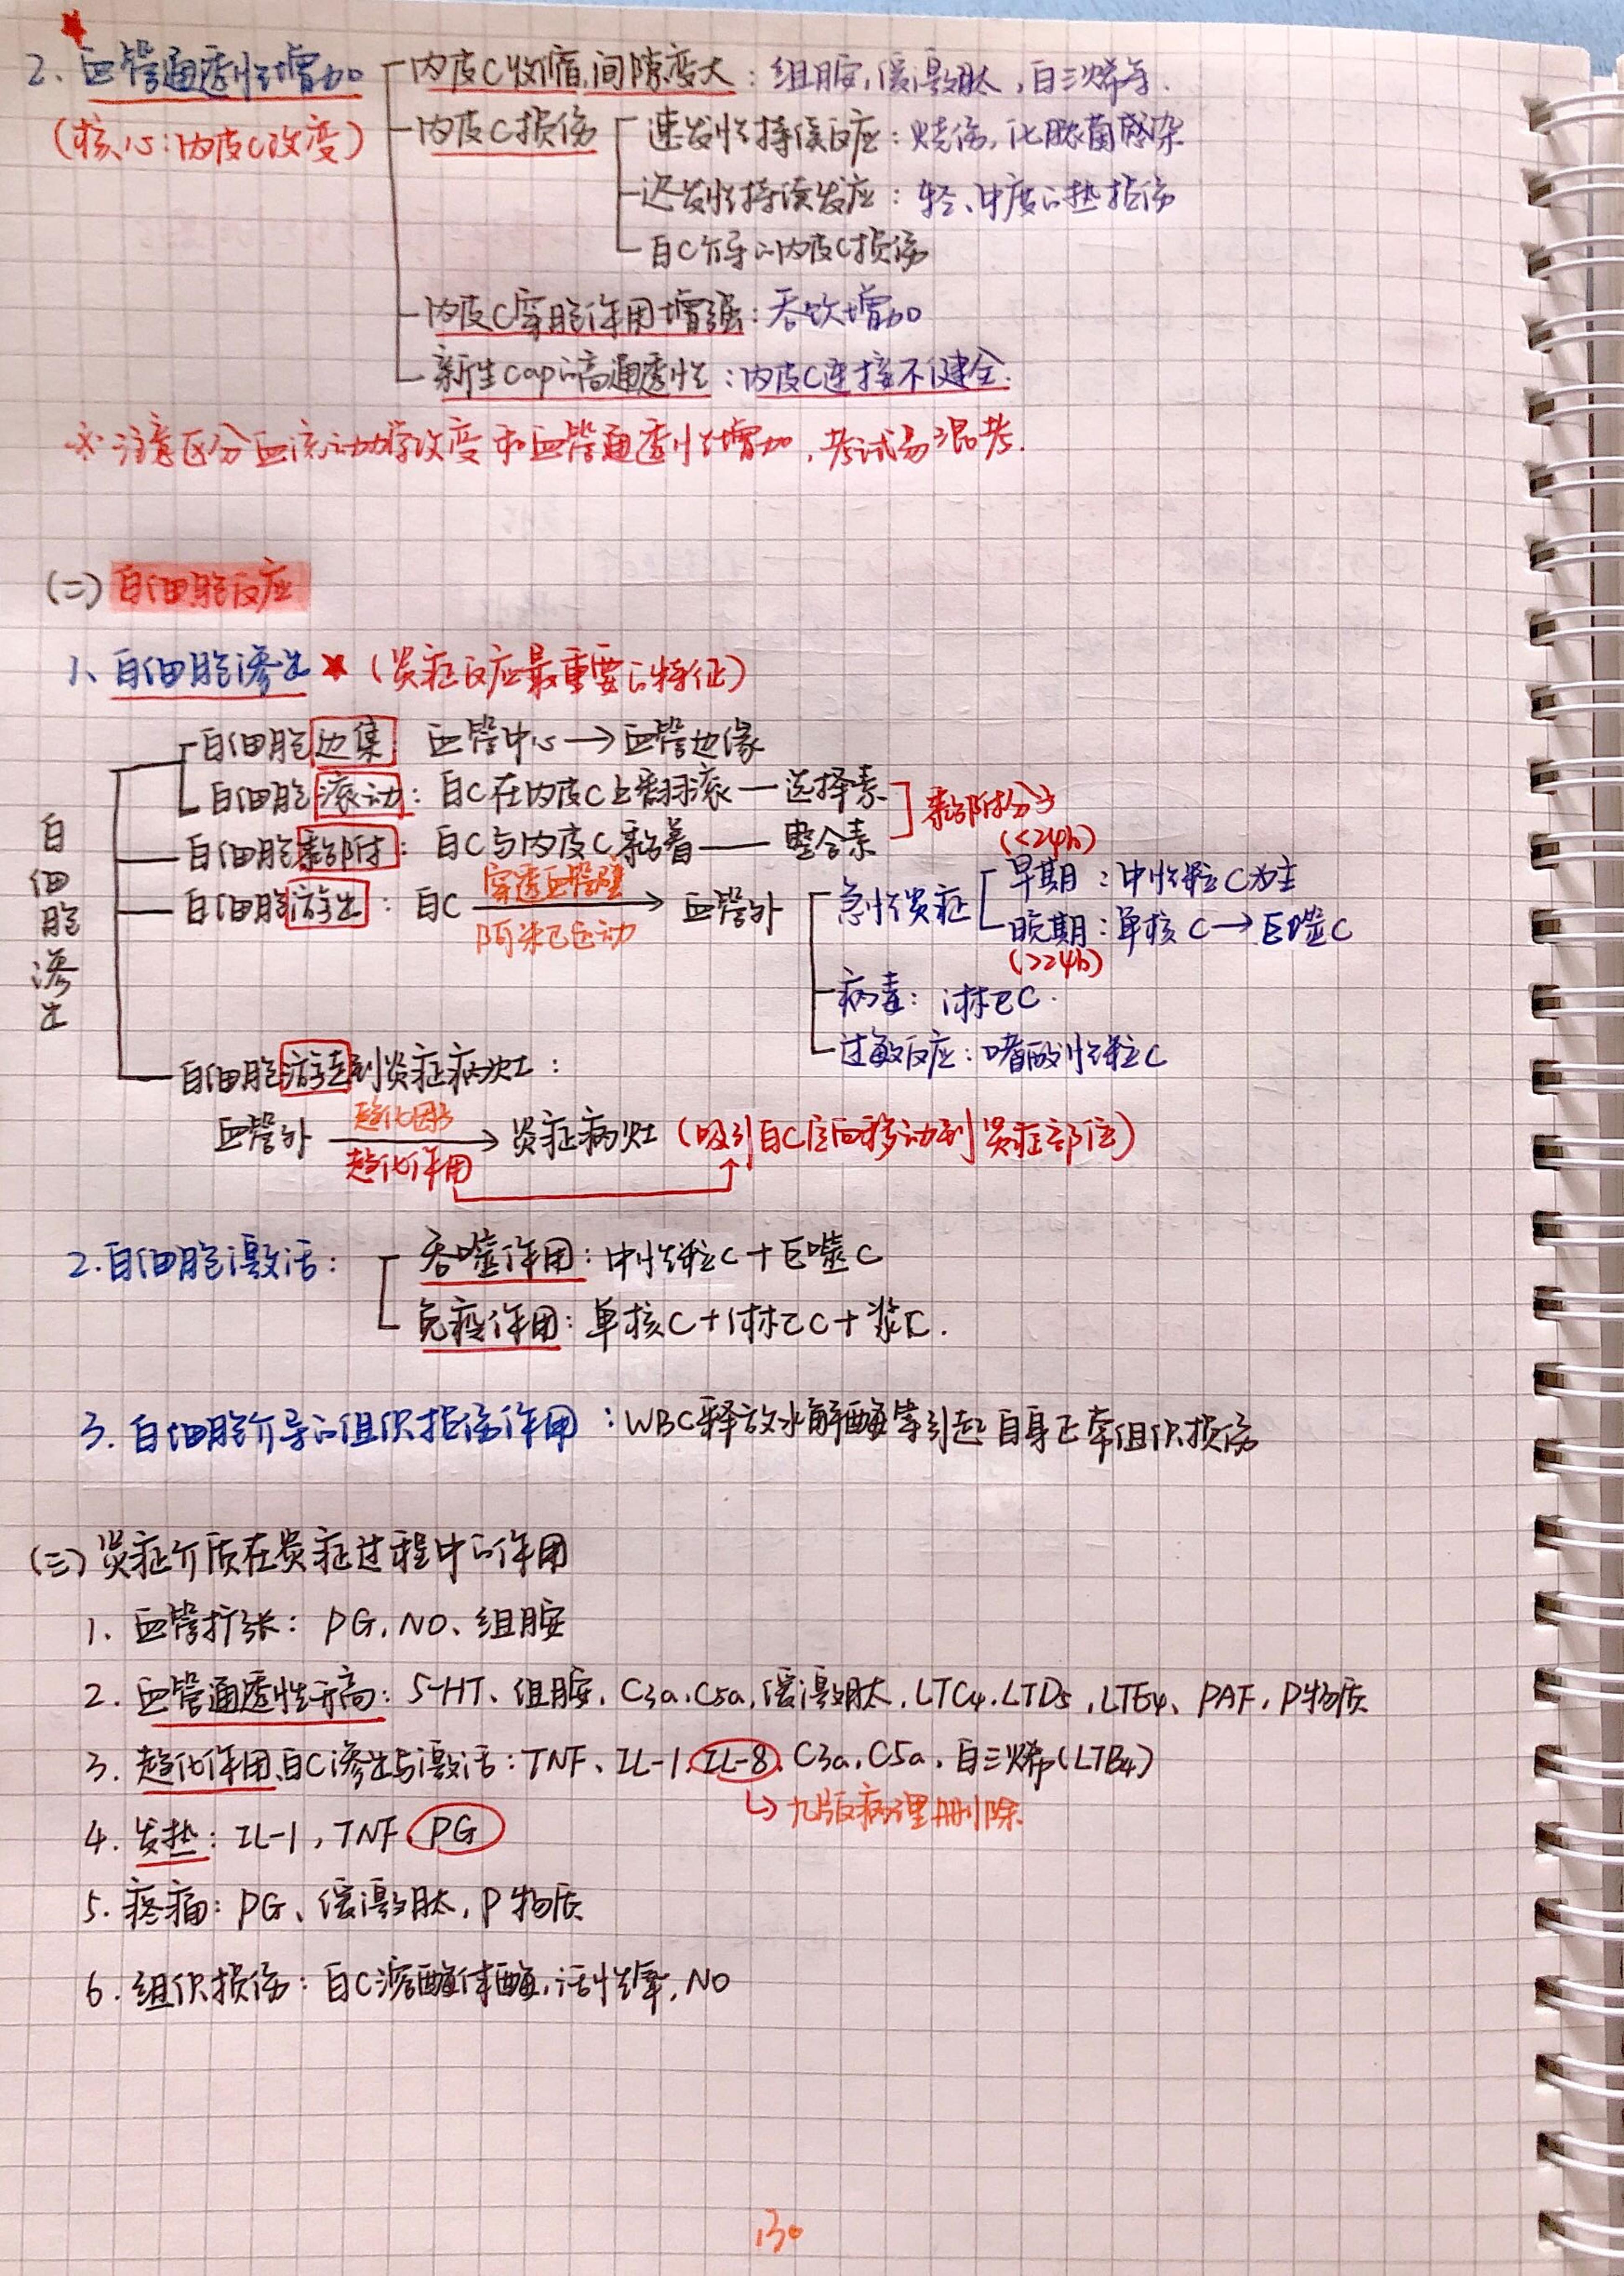 2、血管通透性增加
(核心:内皮C改变)
内皮C收缩,间隙变大:组胺,缓激肽,白三烯等.
内皮C损伤
速发性持续反应:烧伤,化脓菌感染
迟发性持续发应:轻、中度的热损伤
白C介导的内皮C损伤
内皮C穿胞作用增强:吞饮增加
新生cap的高通透性:内皮C连接不健全.
※注意区分血流动力学改变和血管通透性增加,考试易混考.
(二)白细胞反应
1、白细胞渗出★(炎症反应最重要的特征)
白细胞渗出
白细胞边集 血管中心→血管边缘
白细胞滚动:白C在内皮C上翻滚—选择素
白细胞黏附:白C与内皮C黏着——整合素
黏附分子
白细胞游出:白C 穿透血管壁 阿米巴运动 → 血管外
急性炎症
(<24h)
早期:中性粒C为主
晚期:单核C→巨噬C
(>24h)
病毒:淋巴C.
过敏反应:嗜酸性粒C
白细胞游走到炎症病灶:
血管外 趋化因子 趋化作用 → 炎症病灶(吸引白C定向移动到炎症部位)
2.白细胞激活:
吞噬作用:中性粒C+巨噬C
免疫作用:单核C+淋巴C+浆C.
3.白细胞介导的组织损伤作用:WBC释放水解酶等引起自身正常组织损伤
(三)炎症介质在炎症过程中的作用
1.血管扩张:PG,NO、组胺
2.血管通透性升高:5-HT、组胺,C3a,C5a,缓激肽,LTC4,LTD5,LTE4、PAF,P物质
3.趋化作用,白C渗出与激活:TNF、IL-1,IL-8,C3a,C5a,白三烯(LTB4)
↳九版病理删除.
4.发热:IL-1,TNF,PG
5.疼痛:PG、缓激肽,P物质
6.组织损伤:白C溶酶体酶,活性氧,NO
130